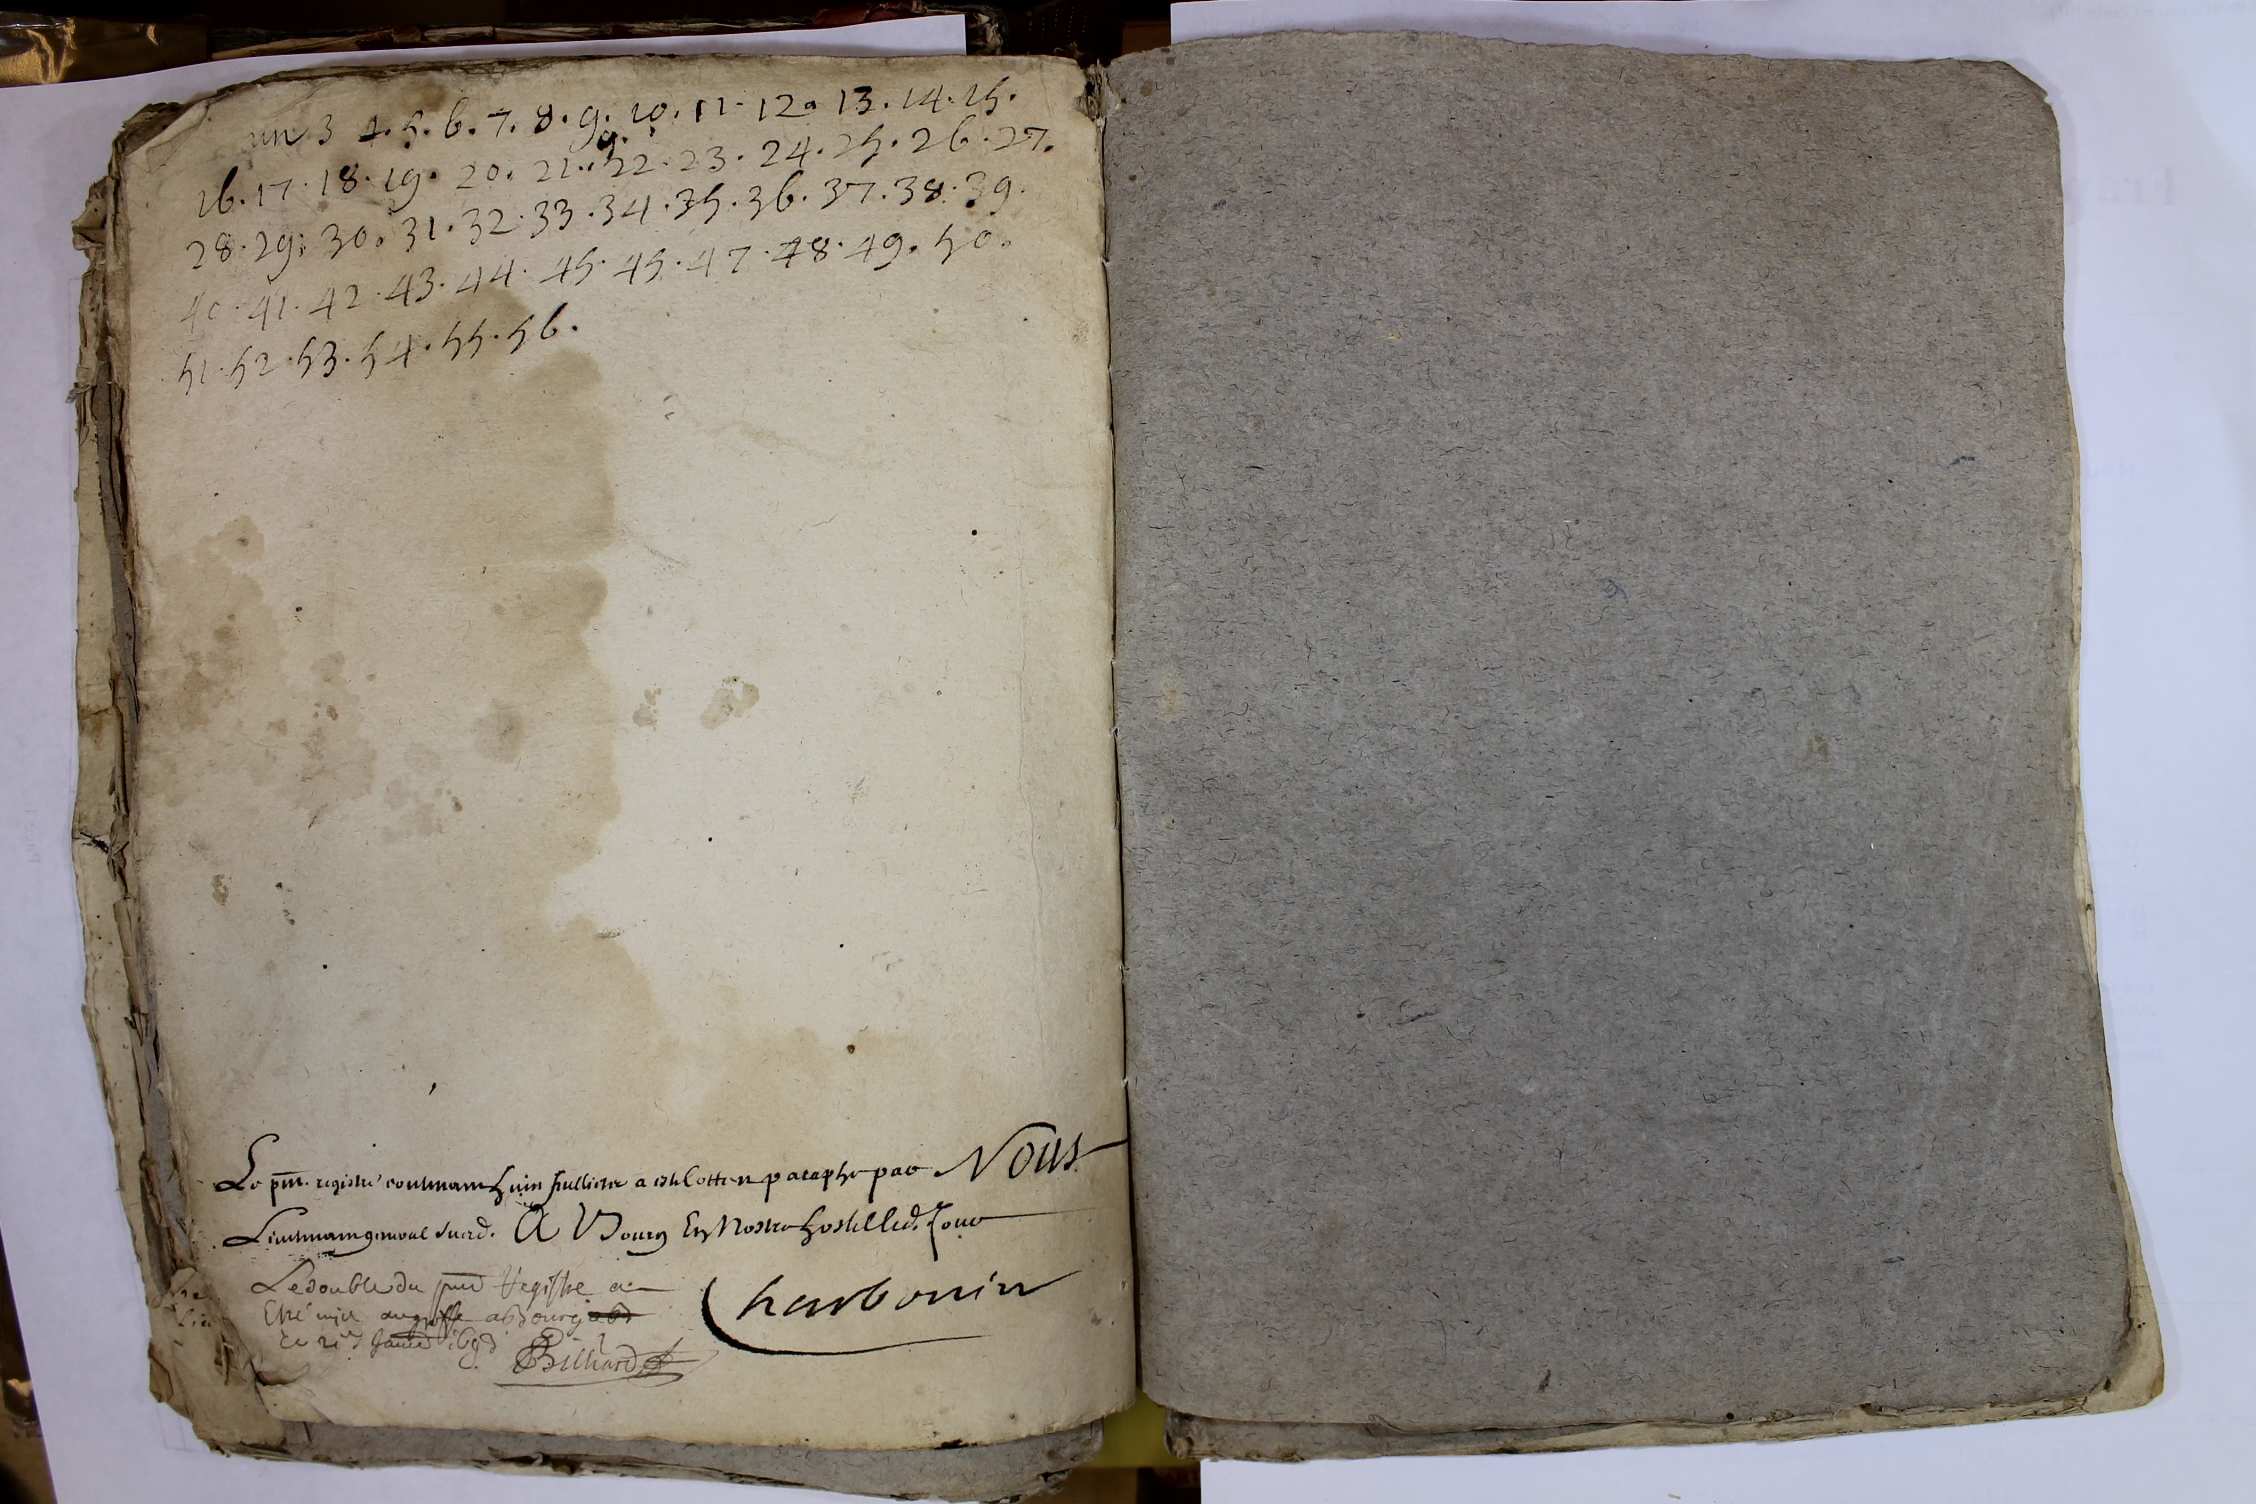 un 3 4. 5. 6. 7. 8. 9. 10. 11. 12. 13. 14. 15.
9.
16. 17. 18. 19. 20. 21. 22. 23. 24. 25. 26. 27.
28. 29. 30. 31. 32. 33. 34. 35. 36. 37. 38. 39.
40. 41. 42. 43. 44. 45. 45. 47. 48. 49. 50.
51. 52. 53. 54. 55. 56.
Le pnt. registre contenant huit feullietz a esté Cotté et paraphe par Nous
Lieutenant general susd. A Bourg En Nostre hostel led. Jour
Charbonier
Le double du pnt Registre a
Esté mis au greffe a Bourg
Billiard